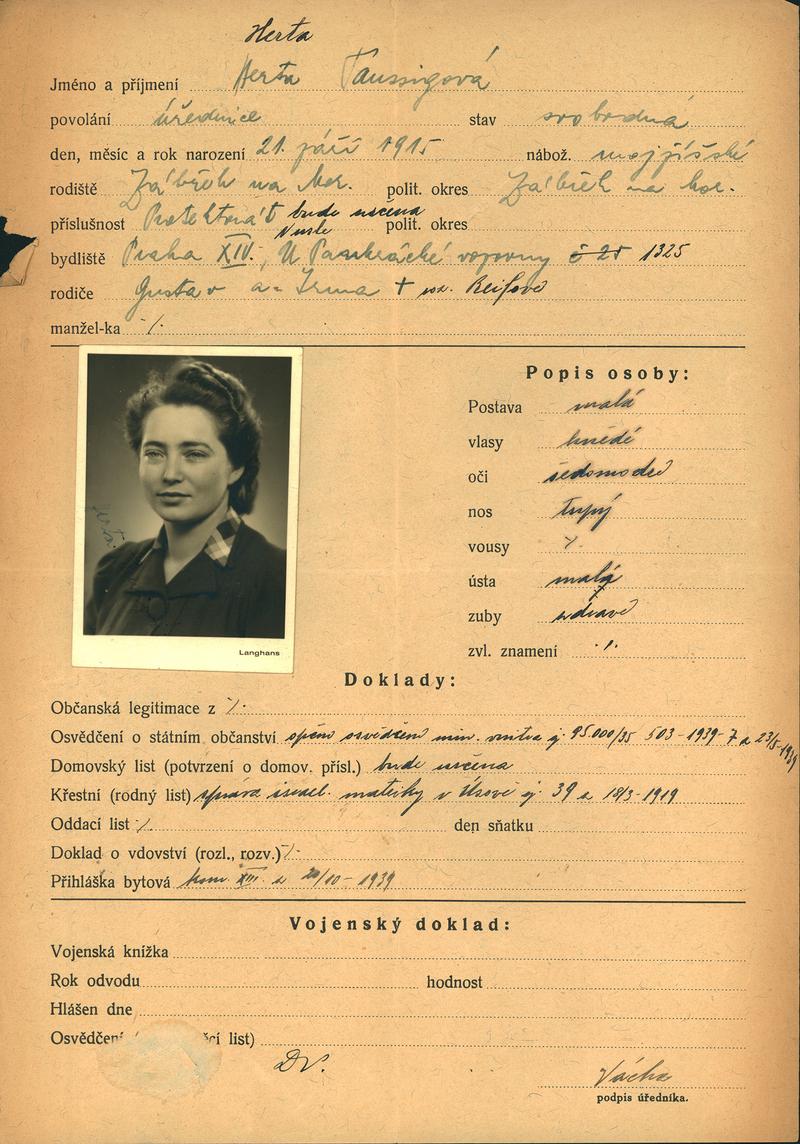 Herta
Jméno a příjmení Herta Taussigová
povolání úřednice stav svobodná
den, měsíc a rok narození 21. září 1915 nábož. mojžíšské
rodiště Zábřeh na Mor. polit. okres Zábřeh na Mor.
příslušnost Protektorát bude určena polit. okres
Nusle
bydliště Praha XIV., U Pankrácké vozovny 1325
rodiče Gustav a Irma + roz. Reifová
manžel-ka /.
Popis osoby:
Postava malá
vlasy hnědé
oči šedomodré
nos tupý
vousy /.
ústa malá
zuby zdravé
zvl. znamení /.
Herta
Langhans
Doklady:
Občanská legitimace z /.
Osvědčení o státním občanství osvědčení min. vnitra čj. 95.000/35 503-1939-7 z 23/5-1939
Domovský list (potvrzení o domov. přísl.) bude určena
Křestní (rodný list) zpráva israel. matriky v Úsově čj. 39 z 18/3-1919
Oddací list /. den sňatku
Doklad o vdovství (rozl., rozv.) /.
Přihláška bytová kom. XIII. z 20/10-1939
Vojenský doklad:
Vojenská knížka
Rok odvodu hodnost
Hlášen dne
Osvědčení list)
Dv.
Vácha
podpis úředníka.